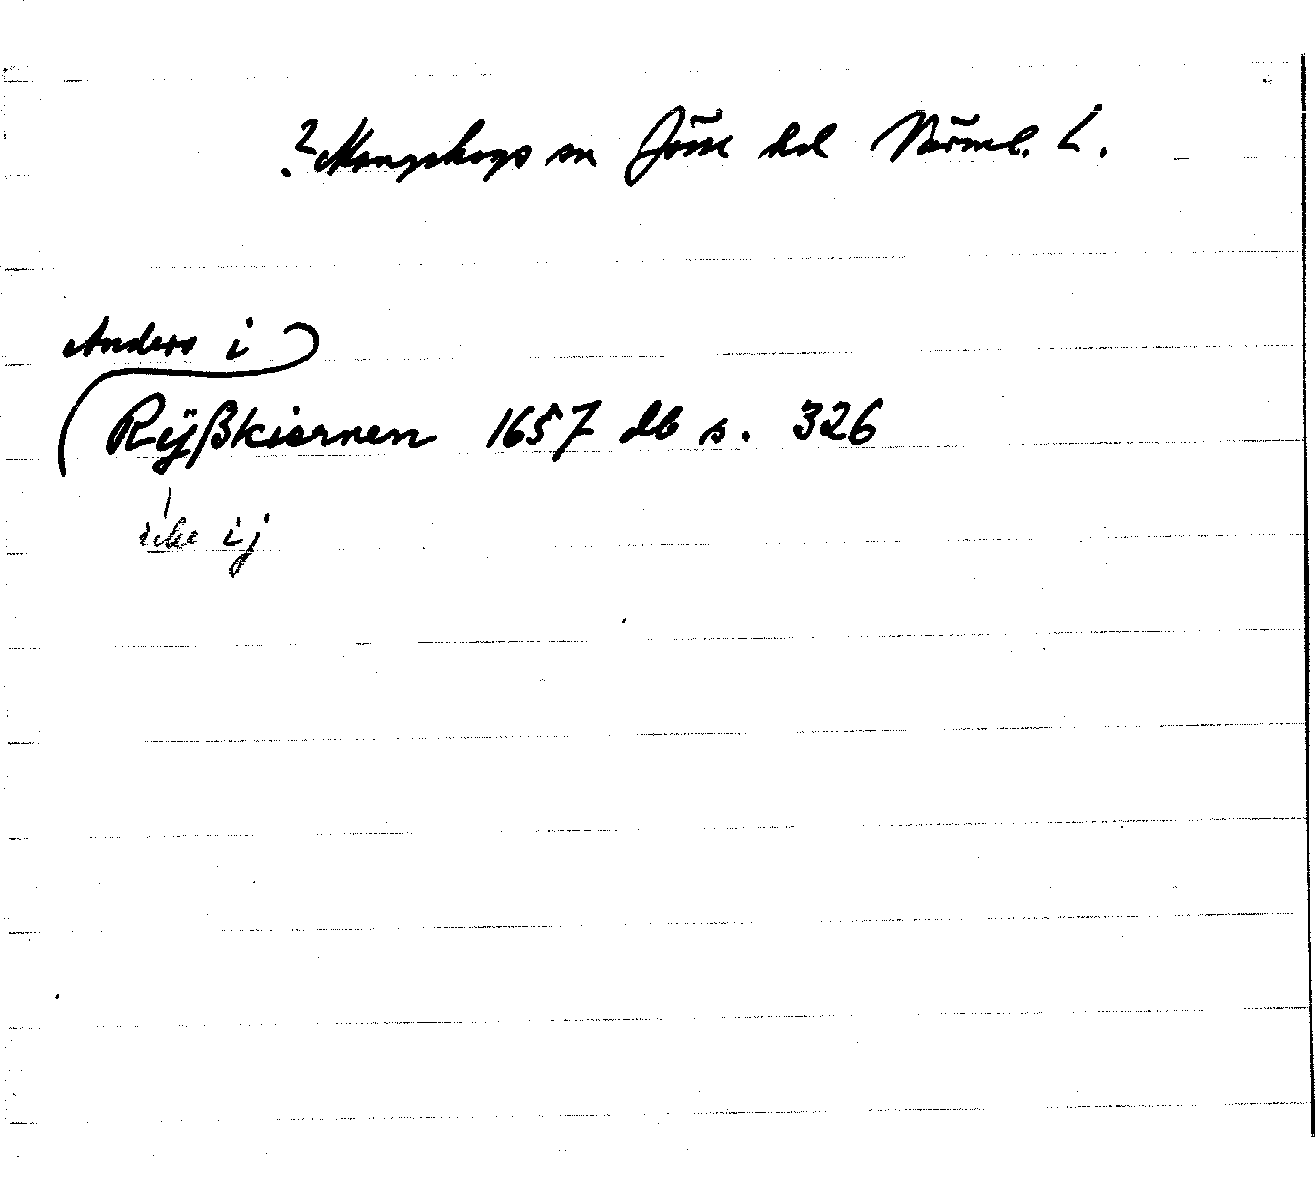 ? Mangskogs sn Jösse hd Värml. L.
Anders i
Rÿßkiernen 1657 db s. 326
icke ij